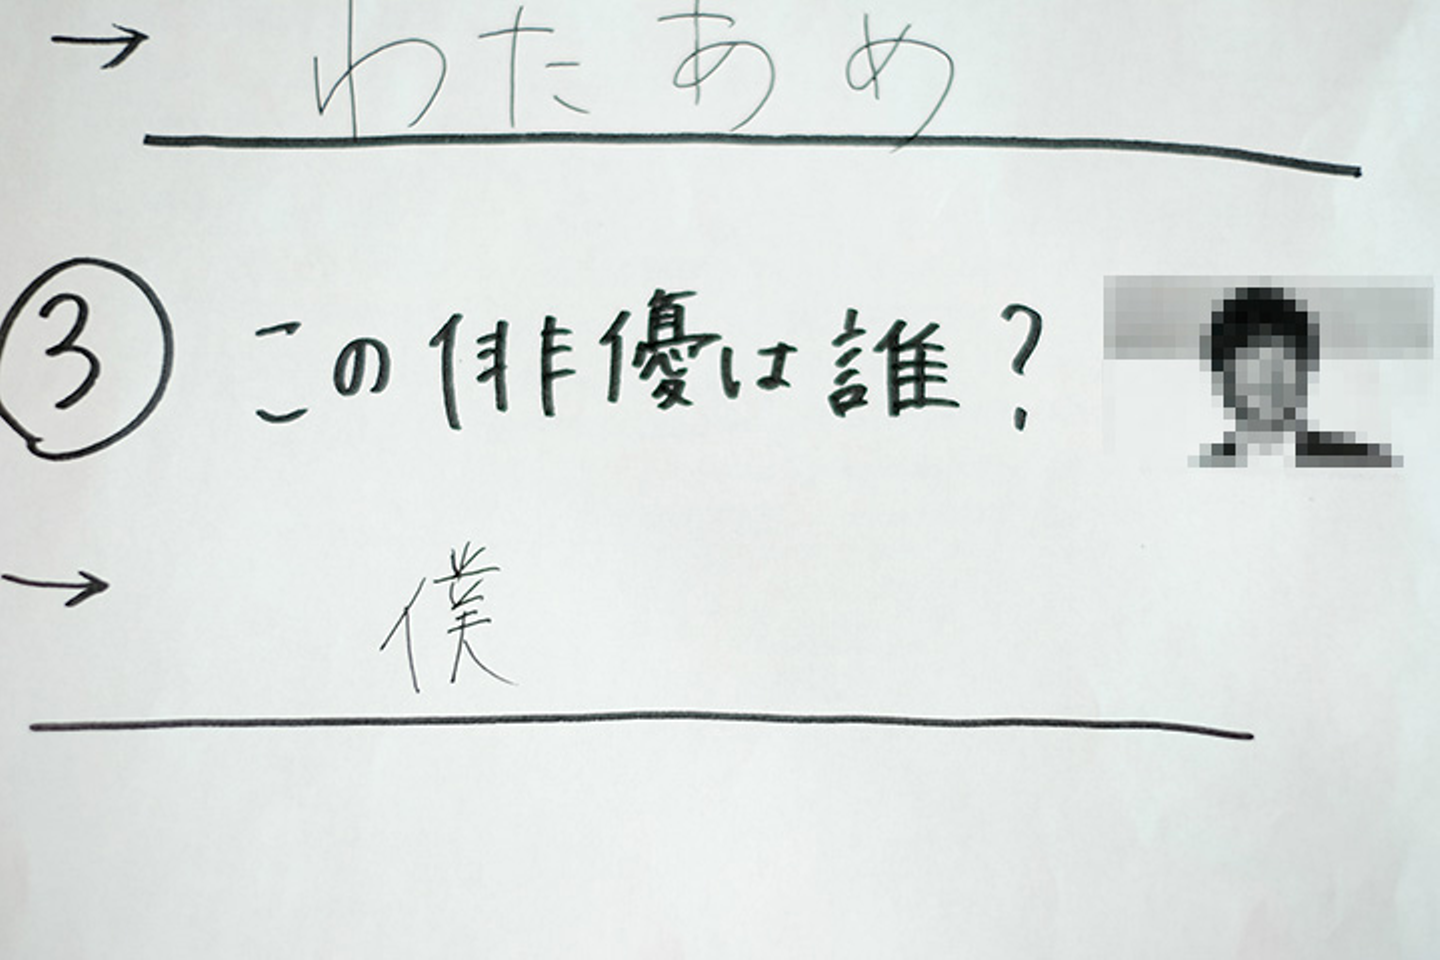 → わたあめ
③ この俳優は誰?
→ 僕